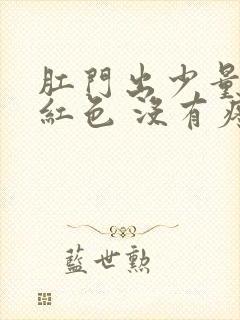 肛門出少量
紅色 沒有
藍世勲